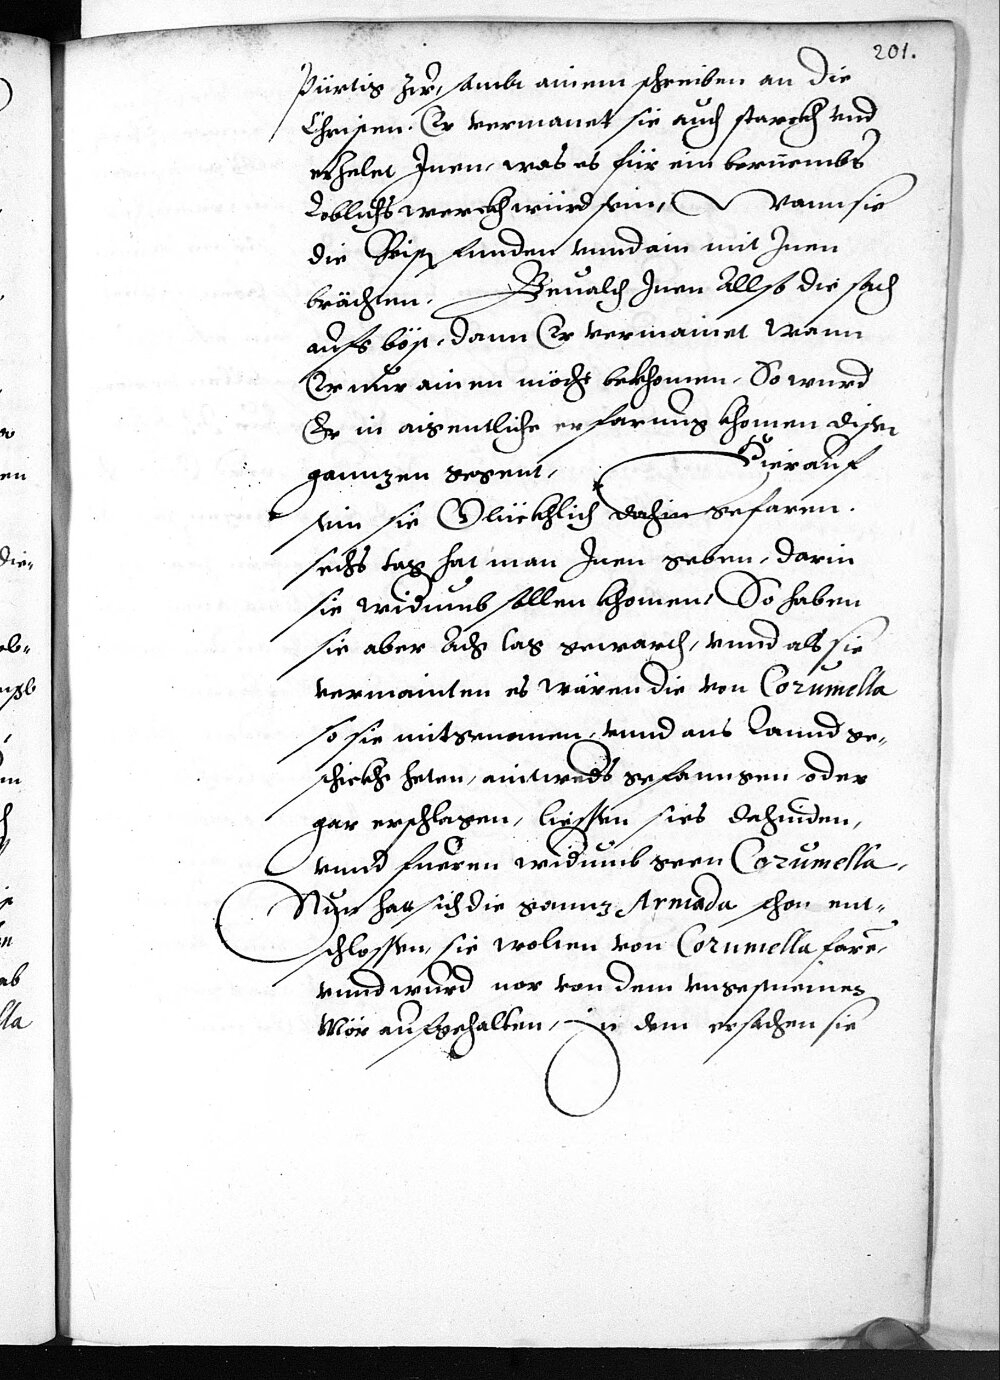 201.
Pürtig Zer, sambt ainem schreiben an die
Chrisen. Er vermanet sie auch starckh vnd
erhelet Inen, was es für ein berüembs
Loblichs werckh würd sein, wann sie
die Schif funden vnnd ain mit Inen
brächten. Beualch Inen Allso die sach
aufs böst, dann Er vermainet wann
Er nur ainen möcht bekhomen, So wurd
Er in aigentliche erfarung khomen diser
ganntzen gegent, Hierauf
sein sie Glückhlich dahin gefaren.
sechs tag hat man Inen geben, darin
sie widumb sollen khomen, So haben
sie aber Acht tag gewart, vnnd als sie
vermainten es wären die von Corumella
so sie mitgenomen, vnnd ans Lannd ge„
schickht heten, aintweds gefanngen oder
gar erschlagen, liessen sies dahinden,
vnnd fueren widumb geen Corumella.
Nun hatt sich die gannz Armada schon ent„
schlossen, sie wolten von Corumella faren,
vnnd wurd nor von dem vngestuemen
Mör aufgehalten, In dem ersachen sie